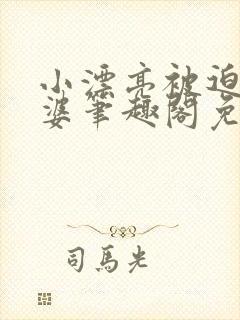 小漂亮被迫
婆笔趣阁免
司马光